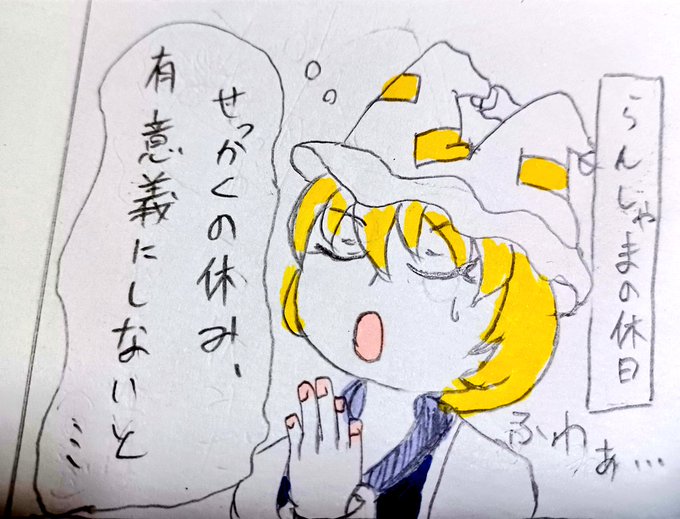 らんしゃまの休日
ふわぁ…
せっかくの休み、
有意義にしないと
…